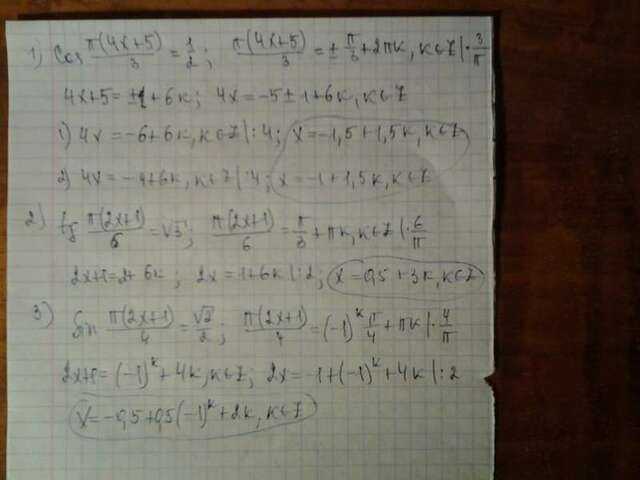 1) Cos π(4x+5)/3 = 1/2; π(4x+5)/3 = ± π/3 + 2πk, k∈Z |· 3/π
4x+5 = ±1 + 6k; 4x = -5 ± 1 + 6k, k∈Z
1) 4x = -6+6k, k∈Z |:4; x = -1,5 + 1,5k, k∈Z
2) 4x = -4+6k, k∈Z |:4; x = -1 + 1,5k, k∈Z
2) tg π(2x+1)/6 = √3; π(2x+1)/6 = π/3 + πk, k∈Z |· 6/π
2x+1 = 2+6k; 2x = 1+6k |:2; x = 0,5 + 3k, k∈Z
3) Sin π(2x+1)/4 = √2/2; π(2x+1)/4 = (-1)^k π/4 + πk |· 4/π
2x+1 = (-1)^k + 4k, k∈Z; 2x = -1 + (-1)^k + 4k |:2
x = -0,5 + 0,5(-1)^k + 2k, k∈Z